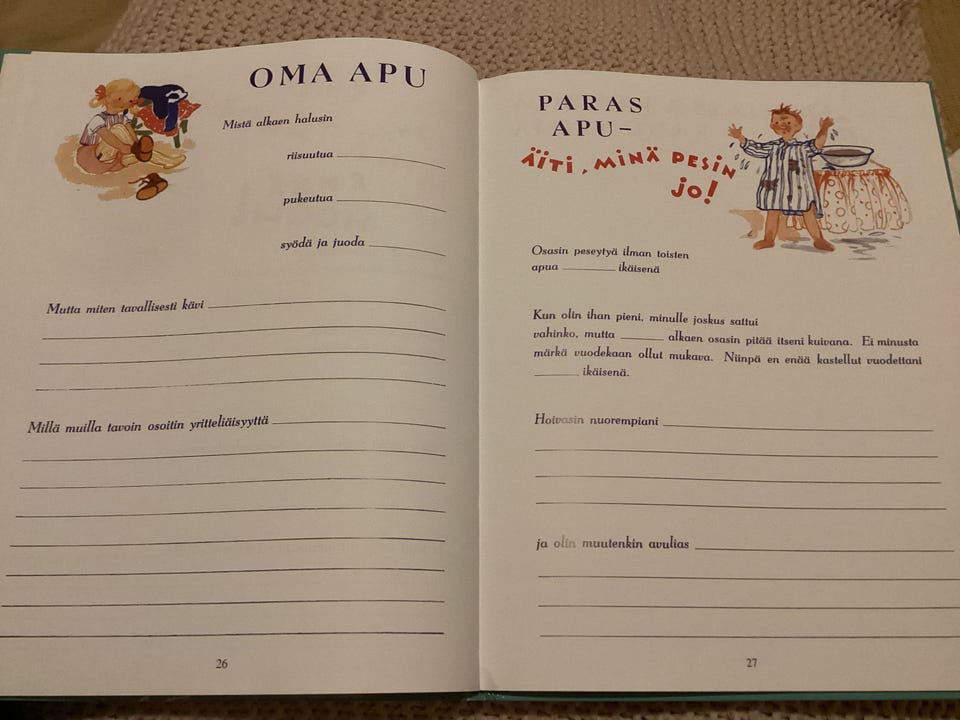 OMA APU
Mistä alkaen halusin
riisuutua
pukeutua
syödä ja juoda
Mutta miten tavallisesti kävi
Millä muilla tavoin osoitin yritteliäisyyttä
26
PARAS
APU–
ÄITI, MINÄ PESIN
jo!
Osasin peseytyä ilman toisten
apua ______ ikäisenä
Kun olin ihan pieni, minulle joskus sattui
vahinko, mutta ______ alkaen osasin pitää itseni kuivana. Ei minusta
märkä vuodekaan ollut mukava. Niinpä en enää kastellut vuodettani
______ ikäisenä.
Hoivasin nuorempiani
ja olin muutenkin avulias
27